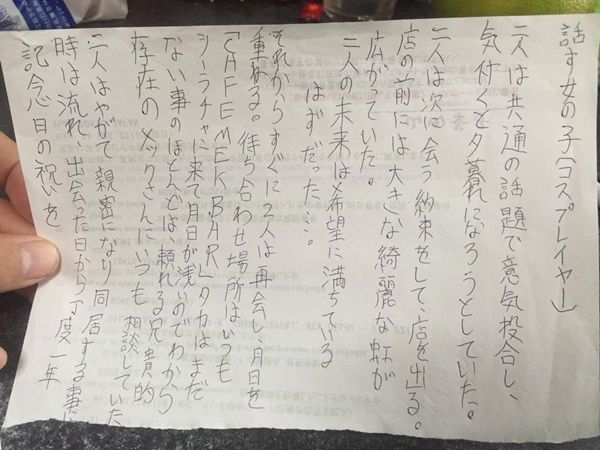 話す女の子(コスプレイヤー)
二人は共通の話題で意気投合し、
気付くと夕暮れになろうとしていた。
二人は次に会う約束をして、店を出る。
店の前には大きな綺麗な虹が
広がっていた。
二人の未来は希望に満ちている
はずだった…。
それからすぐに二人は再会し、月日を
重ねる。待ち合わせ場所はいつも
「CAFE MEKBAR」タカはまだ
シーラチャに来て月日が浅いのでわから
ない事のほとんどは、頼れる兄貴的
存在のメックさんにいつも相談していた
二人はやがて親密になり同居する事に
時は流れ、出会った日から丁度一年
記念日の祝いを